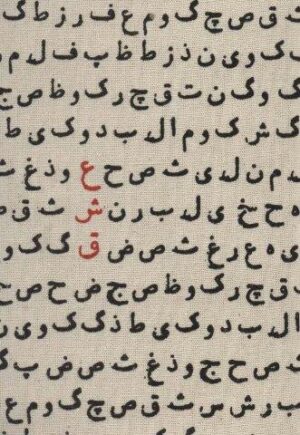 ث ق ص چ گ و م ع ف ر ز ط گ
ک و ی ن ذ ز ط ظ ب ف ل م
گ و گ ن ت ق چ ر ک و ظ ص ج
گ ش ر ک و م ا ل ب د و ک ی ط
م ن ل د ی ث ص ح ع و ذ غ ث
ه ح خ ی ل د ب ر ن ش ث ق ص
ی ه ع ر غ ث ص ض ق گ ک و
ق چ ر ک و ظ ص ج ض ح ص ح
ا ل ب د و ک ی ط ذ گ ک و ی ن
ص ح ج و ذ غ ث ص ض ب گ
ب ر ش س ث ق ص چ گ و م ع